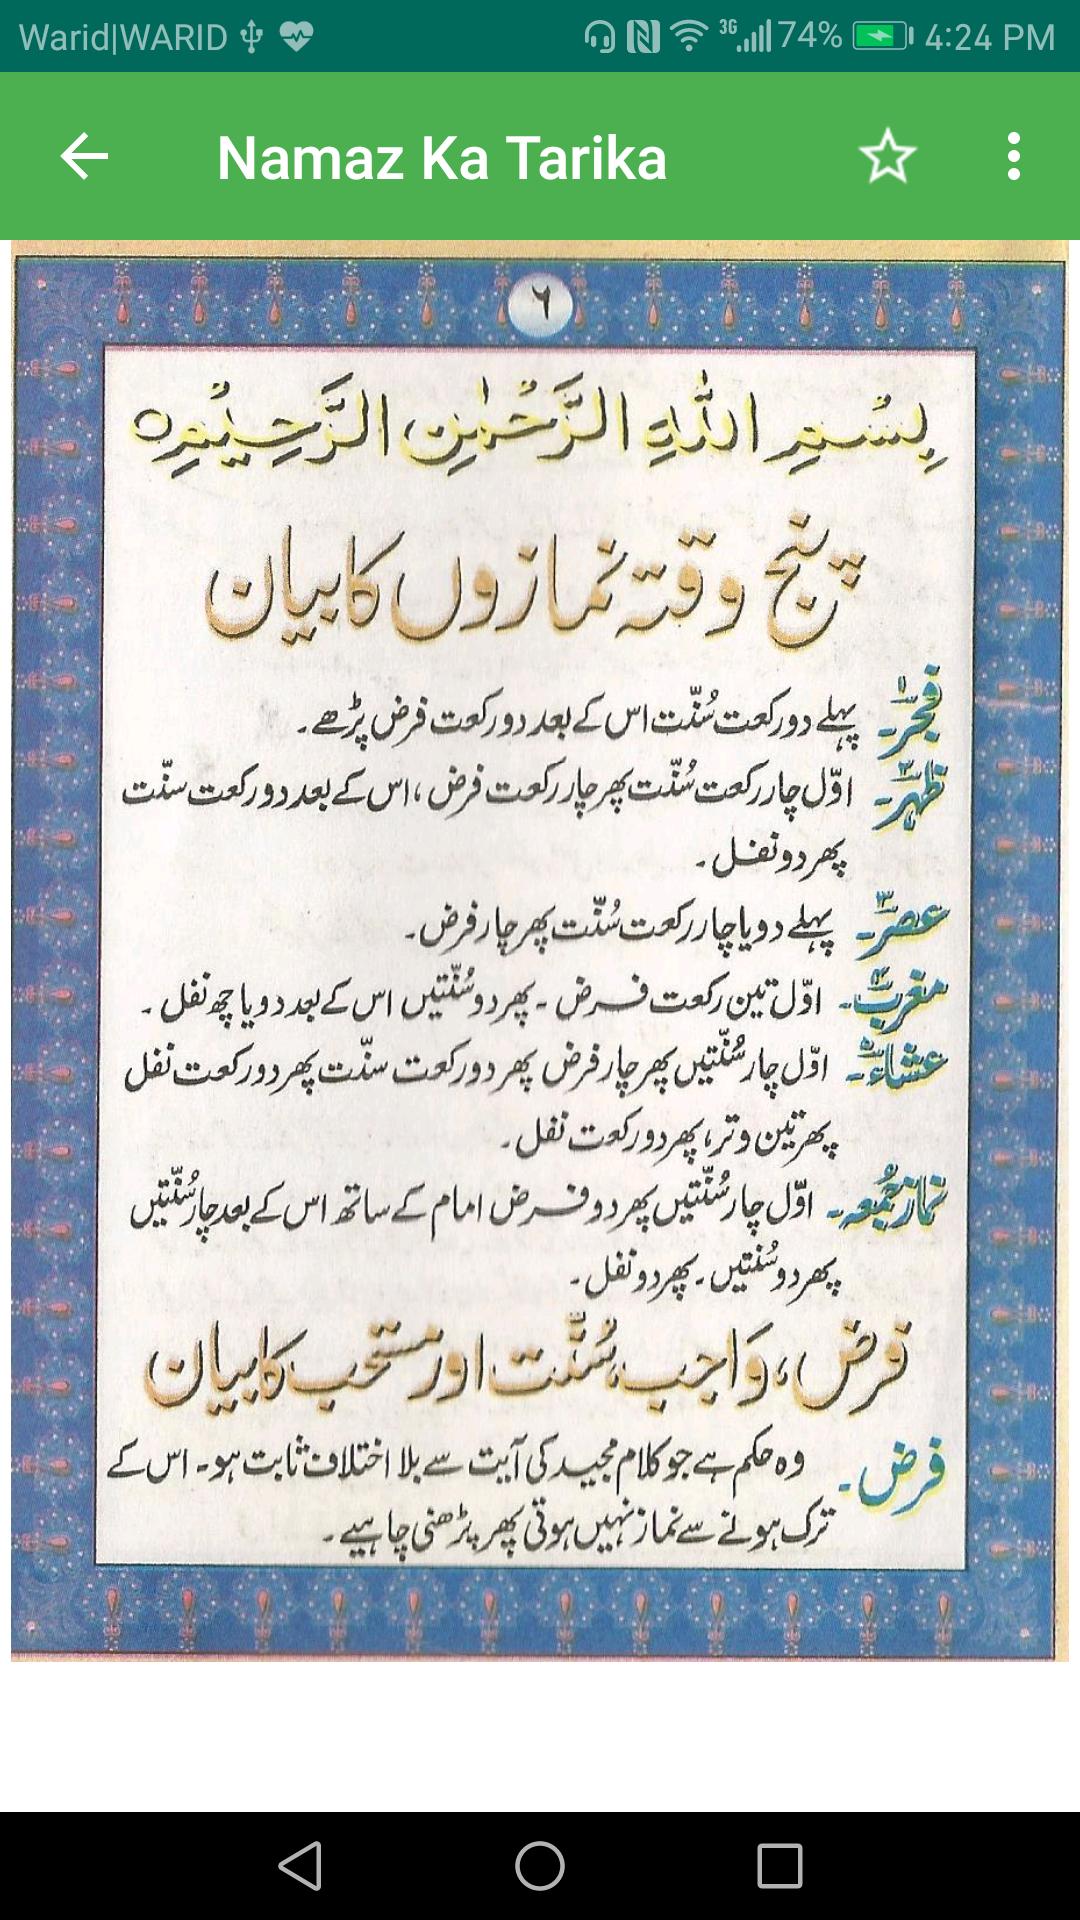 Warid|WARID 3G 74% 4:24 PM
Namaz Ka Tarika
٦
بِسْمِ اللّٰهِ الرَّحْمٰنِ الرَّحِيْمِ○
پنج وقتہ نمازوں کا بیان
۱ فجر۔ پہلے دو رکعت سُنّت اس کے بعد دو رکعت فرض پڑھے۔
۲ ظہر۔ اوّل چار رکعت سُنّت پھر چار رکعت فرض، اس کے بعد دو رکعت سنّت
پھر دو نفل۔
۳ عصر۔ پہلے دو یا چار رکعت سُنّت پھر چار فرض۔
۴ مغرب۔ اوّل تین رکعت فرض۔ پھر دو سُنّتیں اس کے بعد دو یا چھ نفل۔
۵ عشاء۔ اوّل چار سُنّتیں پھر چار فرض پھر دو رکعت سنّت پھر دو رکعت نفل
پھر تین وتر، پھر دو رکعت نفل۔
نماز جُمعہ۔ اوّل چار سُنّتیں پھر دو فرض امام کے ساتھ اس کے بعد چار سُنّتیں
پھر دو سُنتیں۔ پھر دو نفل۔
فرض، وَاجب، سُنَّت اور مستحب کا بیان
فرض۔ وہ حکم ہے جو کلام مجید کی آیت سے بلا اختلاف ثابت ہو۔ اس کے
ترک ہونے سے نماز نہیں ہوتی پھر پڑھنی چاہیے۔